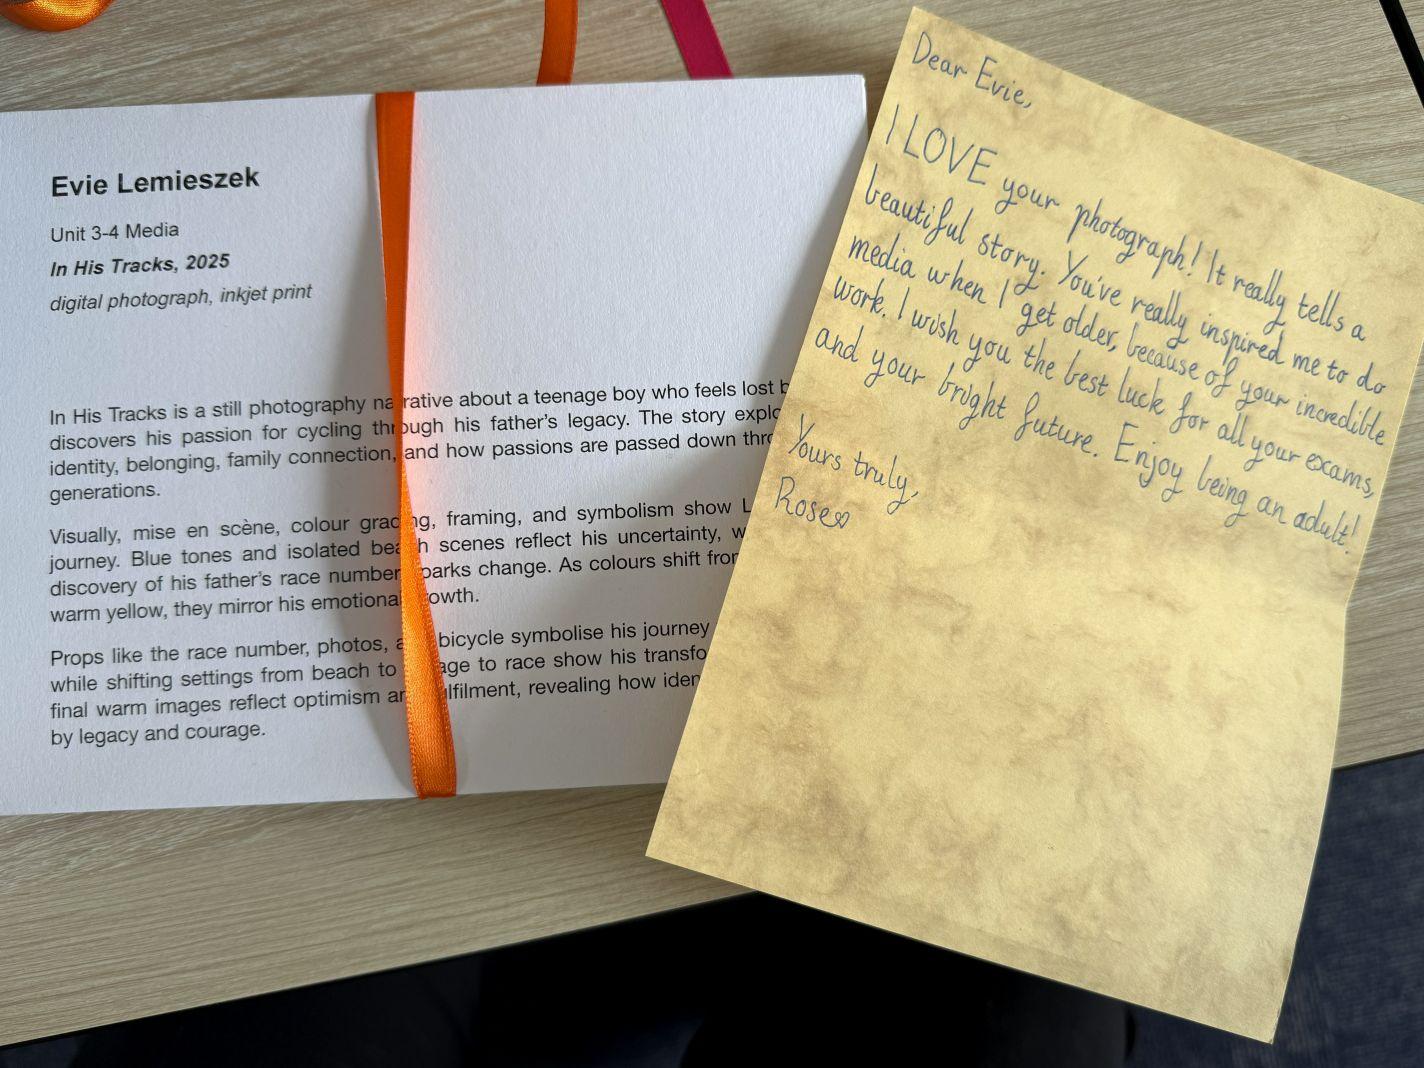 Evie Lemieszek
Unit 3-4 Media
In His Tracks, 2025
digital photograph, inkjet print
In His Tracks is a still photography narrative about a teenage boy who feels lost
discovers his passion for cycling through his father's legacy. The story
identity, belonging, family connection, and how passions are passed down
generations.
Visually, mise en scène, colour grading, framing, and symbolism show
journey. Blue tones and isolated beach scenes reflect his uncertainty,
discovery of his father's race number sparks change. As colours shift from
warm yellow, they mirror his emotional growth.
Props like the race number, photos, and bicycle symbolise his journey
while shifting settings from beach to garage to race show his
final warm images reflect optimism and fulfilment, revealing how
by legacy and courage.
Dear Evie,
I LOVE your photograph! It really tells a
beautiful story. You've really inspired me to do
media when I get older, because of your incredible
work. I wish you the best luck for all your exams,
and your bright future. Enjoy being an adult!
Yours truly,
Rose